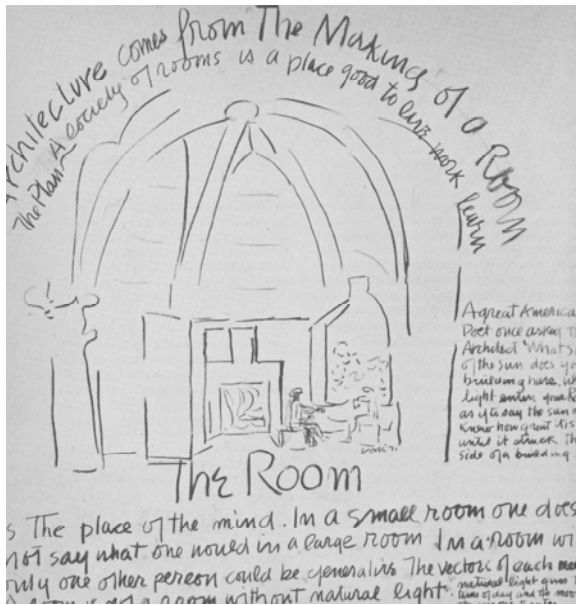 Architecture comes from The Making of a Room
The Plan A society of rooms is a place good to live work learn
A great America
Poet once asked
Architect 'What s
of the sun does yo
building have, w
light enters your R
as if to say the sun
knew how great it is
until it struck The
side of a building
The Room
s The place of the mind. In a small room one does
not say what one would in a large room In a room wi
only one other person could be generative The vectors of each
room is not a room without natural light
natural light gives
time of day and the mood